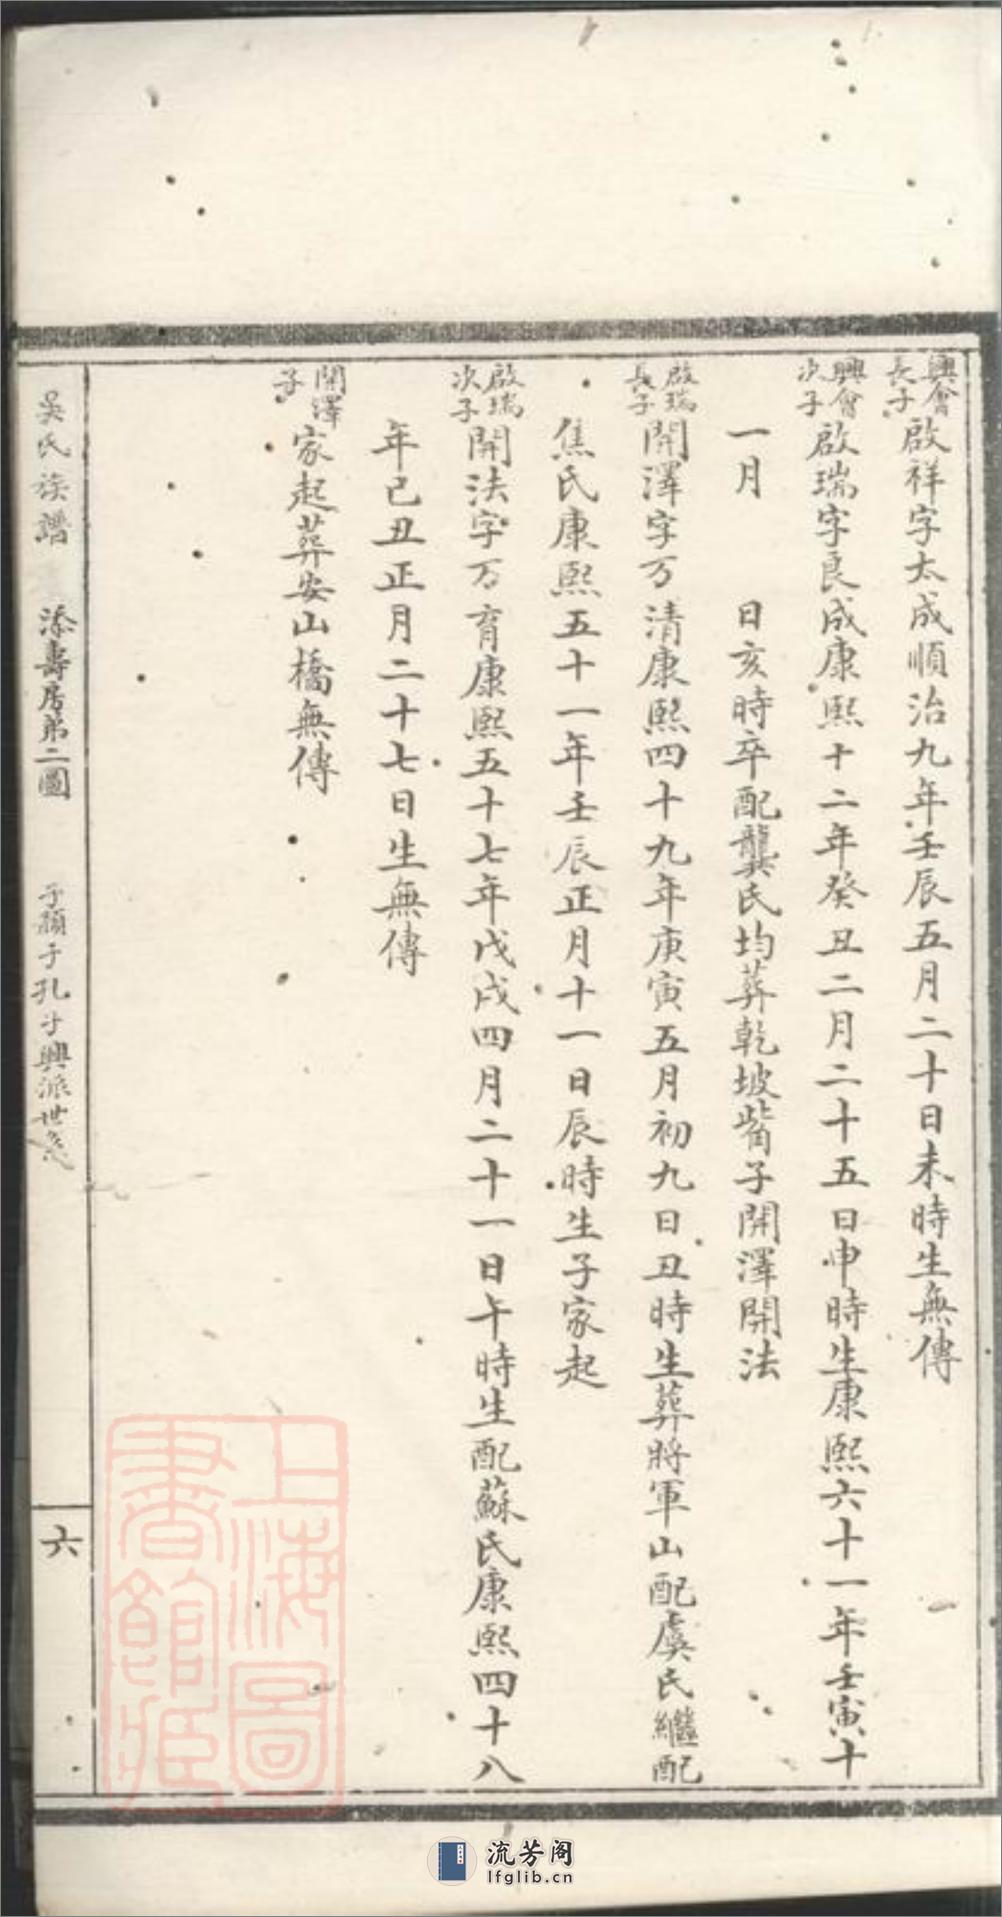 興會長子
啟祥字太成順治九年壬辰五月二十日未時生無傳
興會次子
啟瑞字良成康熙十二年癸丑二月二十五日申時生康熙六十一年壬寅十
一月　　日亥時卒配龔氏均葬乾坡嘴子開澤開法
啟瑞長子
開澤字万清康熙四十九年庚寅五月初九日丑時生葬將軍山配虞氏繼配
焦氏康熙五十一年壬辰正月十一日辰時生子家起
啟瑞次子
開法字万育康熙五十七年戊戌四月二十一日午時生配蘇氏康熙四十八
年己丑正月二十七日生無傳
開澤子
家起葬安山橋無傳
吳氏族譜　添壽居弟二圖　子顏子孔子興派世系
六
上海圖書館藏
流芳阁
lfglib.cn